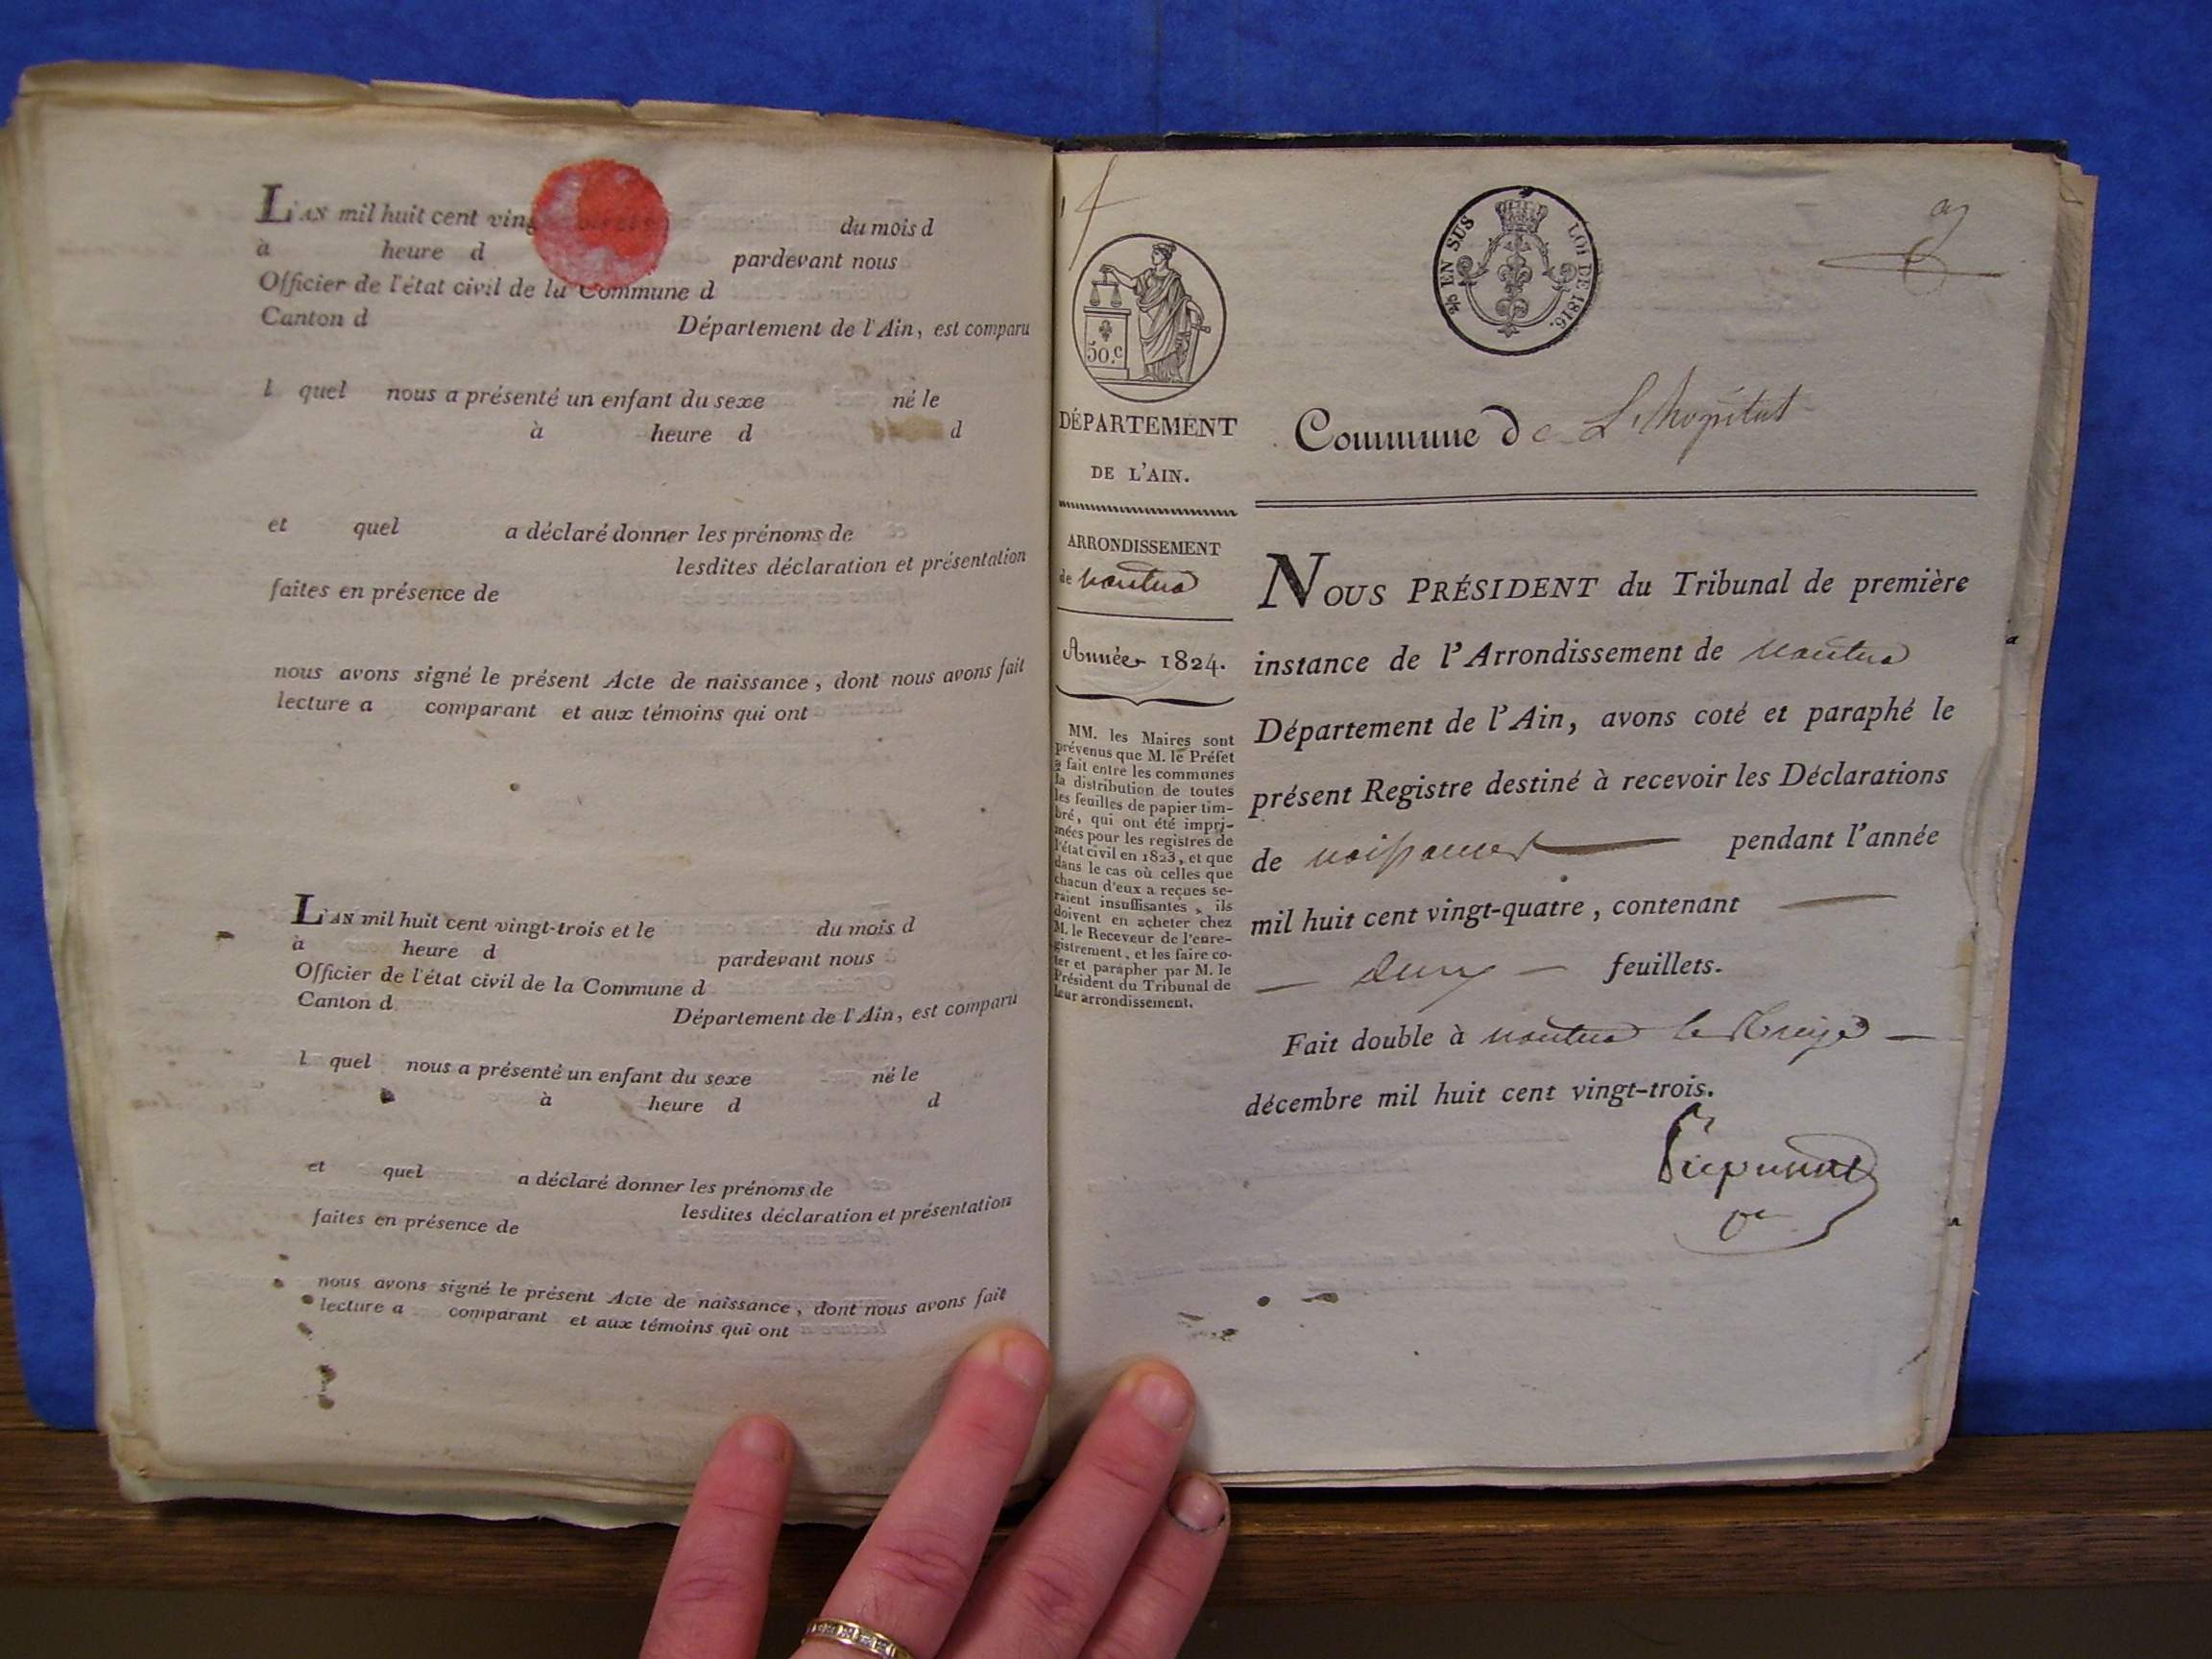 L'AN mil huit cent ving du mois d
à heure d pardevant nous
Officier de l'état civil de la Commune d
Canton d Département de l'Ain, est comparu
l quel nous a présenté un enfant du sexe né le
à heure d d
et quel a déclaré donner les prénoms de
lesdites déclaration et présentation
faites en présence de
nous avons signé le présent Acte de naissance, dont nous avons fait
lecture a comparant et aux témoins qui ont
L'AN mil huit cent vingt-trois et le du mois d
à heure d pardevant nous
Officier de l'état civil de la Commune d
Canton d Département de l'Ain, est comparu
l quel nous a présenté un enfant du sexe né le
à heure d d
et quel a déclaré donner les prénoms de
lesdites déclaration et présentation
faites en présence de
nous avons signé le présent Acte de naissance, dont nous avons fait
lecture a comparant et aux témoins qui ont
50.c
EN SUS LOI DE 1816.
DÉPARTEMENT
DE L'AIN.
ARRONDISSEMENT
de nantua
Année 1824.
MM. les Maires sont
prévenus que M. le Préfet
a fait entre les communes
la distribution de toutes
les feuilles de papier tim-
bré, qui ont été impri-
mées pour les registres de
l'état civil en 1823, et que
dans le cas où celles que
chacun d'eux a reçues se-
raient insuffisantes, ils
doivent en acheter chez
M. le Receveur de l'enre-
gistrement, et les faire co-
ter et parapher par M. le
Président du Tribunal de
leur arrondissement.
Commune de L'hopital
NOUS PRÉSIDENT du Tribunal de première
instance de l'Arrondissement de nantua
Département de l'Ain, avons coté et paraphé le
présent Registre destiné à recevoir les Déclarations
de naissances pendant l'année
mil huit cent vingt-quatre, contenant
deux feuillets.
Fait double à nantua le Treize
décembre mil huit cent vingt-trois.